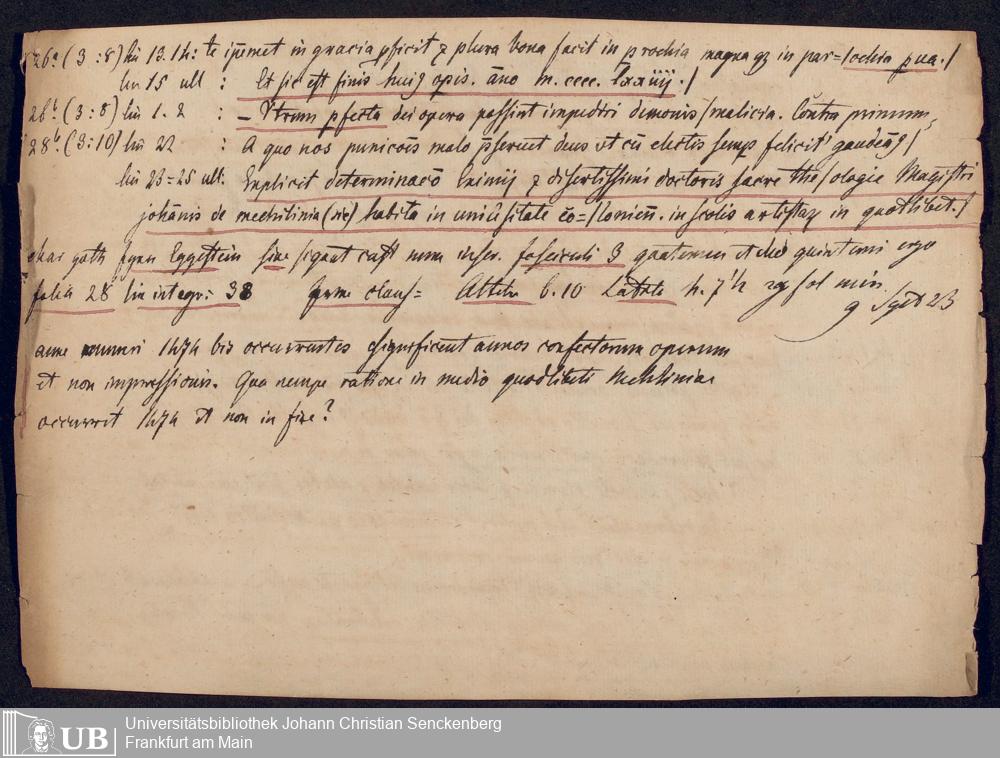 26a (3:8) lin 13.14: te ip̄emet in gracia ꝑficit ⁊ plura bona facit in prochia magna qꝫ in par=/ochia ꝑua./
lin 15 ull : Et sic est finis huiꝰ opis. āno m. cccc. lxxiiij./
28b (3:8) lin 1.2 : – Vtrum ꝑfecta dei opera possint impediri demonis/malicia. Contra primum,
28b (3:10) lin 22 : A quo nos punicōis malo ꝑseruet deus vt cū electis semꝑ felicit' gaudeāꝰ/
lin 23=25 ull: Explicit determinacō Eximij ⁊ disertissimi doctoris sacre the/ologie Magistri
johānis de mechilinia (sic) habita in uniūsitate co=/lonien̄. in scolis artistaꝝ in quotlibet./
char goth Eggestein sine signat cust num fasciculi 3 quaterni quinterni ergo
folia 28 lin integr: 38 Attele 6.10 h. 7'h
9 Sept 23
anne numeri 1474 bis occurrentes significent annos confectorum operum
et non impressionis. Qua nempe ratione in medio quodlibeti Mechliniae
occurrit 1474 et non in fine?
UB Universitätsbibliothek Johann Christian Senckenberg
Frankfurt am Main